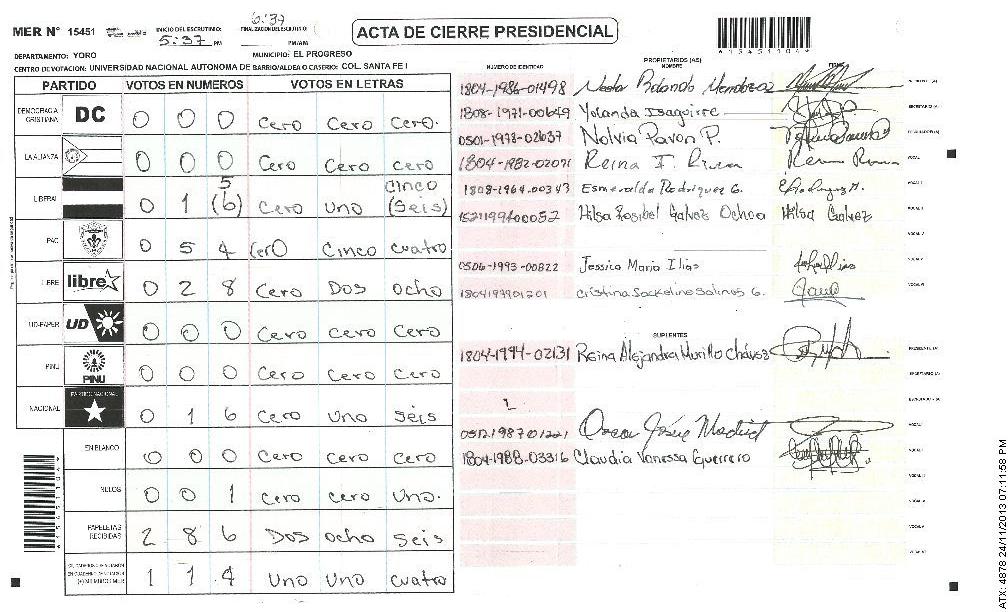 MER N° 15451
INICIO DEL ESCRUTINIO:
5:37 PM
6:37
FINALIZACION DEL ESCRUTINIO:
PM/AM
ACTA DE CIERRE PRESIDENCIAL
DEPARTAMENTO: YORO
MUNICIPIO: EL PROGRESO
CENTRO DE VOTACION: UNIVERSIDAD NACIONAL AUTONOMA DE BARRIO/ALDEA O CASERIO: COL. SANTA FE I
PARTIDO VOTOS EN NUMEROS VOTOS EN LETRAS
DEMOCRACIA CRISTIANA DC 0 0 0 Cero Cero Cero.
LA ALIANZA 0 0 0 Cero Cero Cero
5 Cinco
LIBERAL 0 1 (6) Cero Uno (Seis)
PAC 0 5 4 Cero Cinco Cuatro
LIBRE libre 0 2 8 Cero Dos Ocho
UD-FAPER UD 0 0 0 Cero Cero Cero
PINU PINU 0 0 0 Cero Cero Cero
NACIONAL PARTIDO NACIONAL 0 1 6 Cero Uno Seis
EN BLANCO 0 0 0 Cero Cero Cero
NULOS 0 0 1 Cero Cero Uno.
PAPELETAS RECIBIDAS 2 8 6 Dos Ocho Seis
1 1 4 Uno Uno Cuatro
PROPIETARIOS (AS)
NUMERO DE IDENTIDAD NOMBRE FIRMA
1804-1986-01498 Nestor Rolando Mendoza
1808-1971-00649 Yolanda Isaguirre
0501-1978-02637 Nolvia Pavon P.
1804-1982-02091 Reina I.
1808-1964-00343 Esmeralda Rodriguez G.
1521199400052 Hilsa Rosibel Galvez Ochoa Hilsa Galvez
0506-1993-00822 Jessica Maria Elias
1804199901201 Cristina Sackeline Salinas G.
SUPLENTES
1804-1994-02131 Reina Alejandra Murillo Chávez
0512-1987-01221 Oscar Josue Madrid
1804-1988-03316 Claudia Vanessa Guerrero
ATX: 4878 24/11/2013 07:11:58 PM